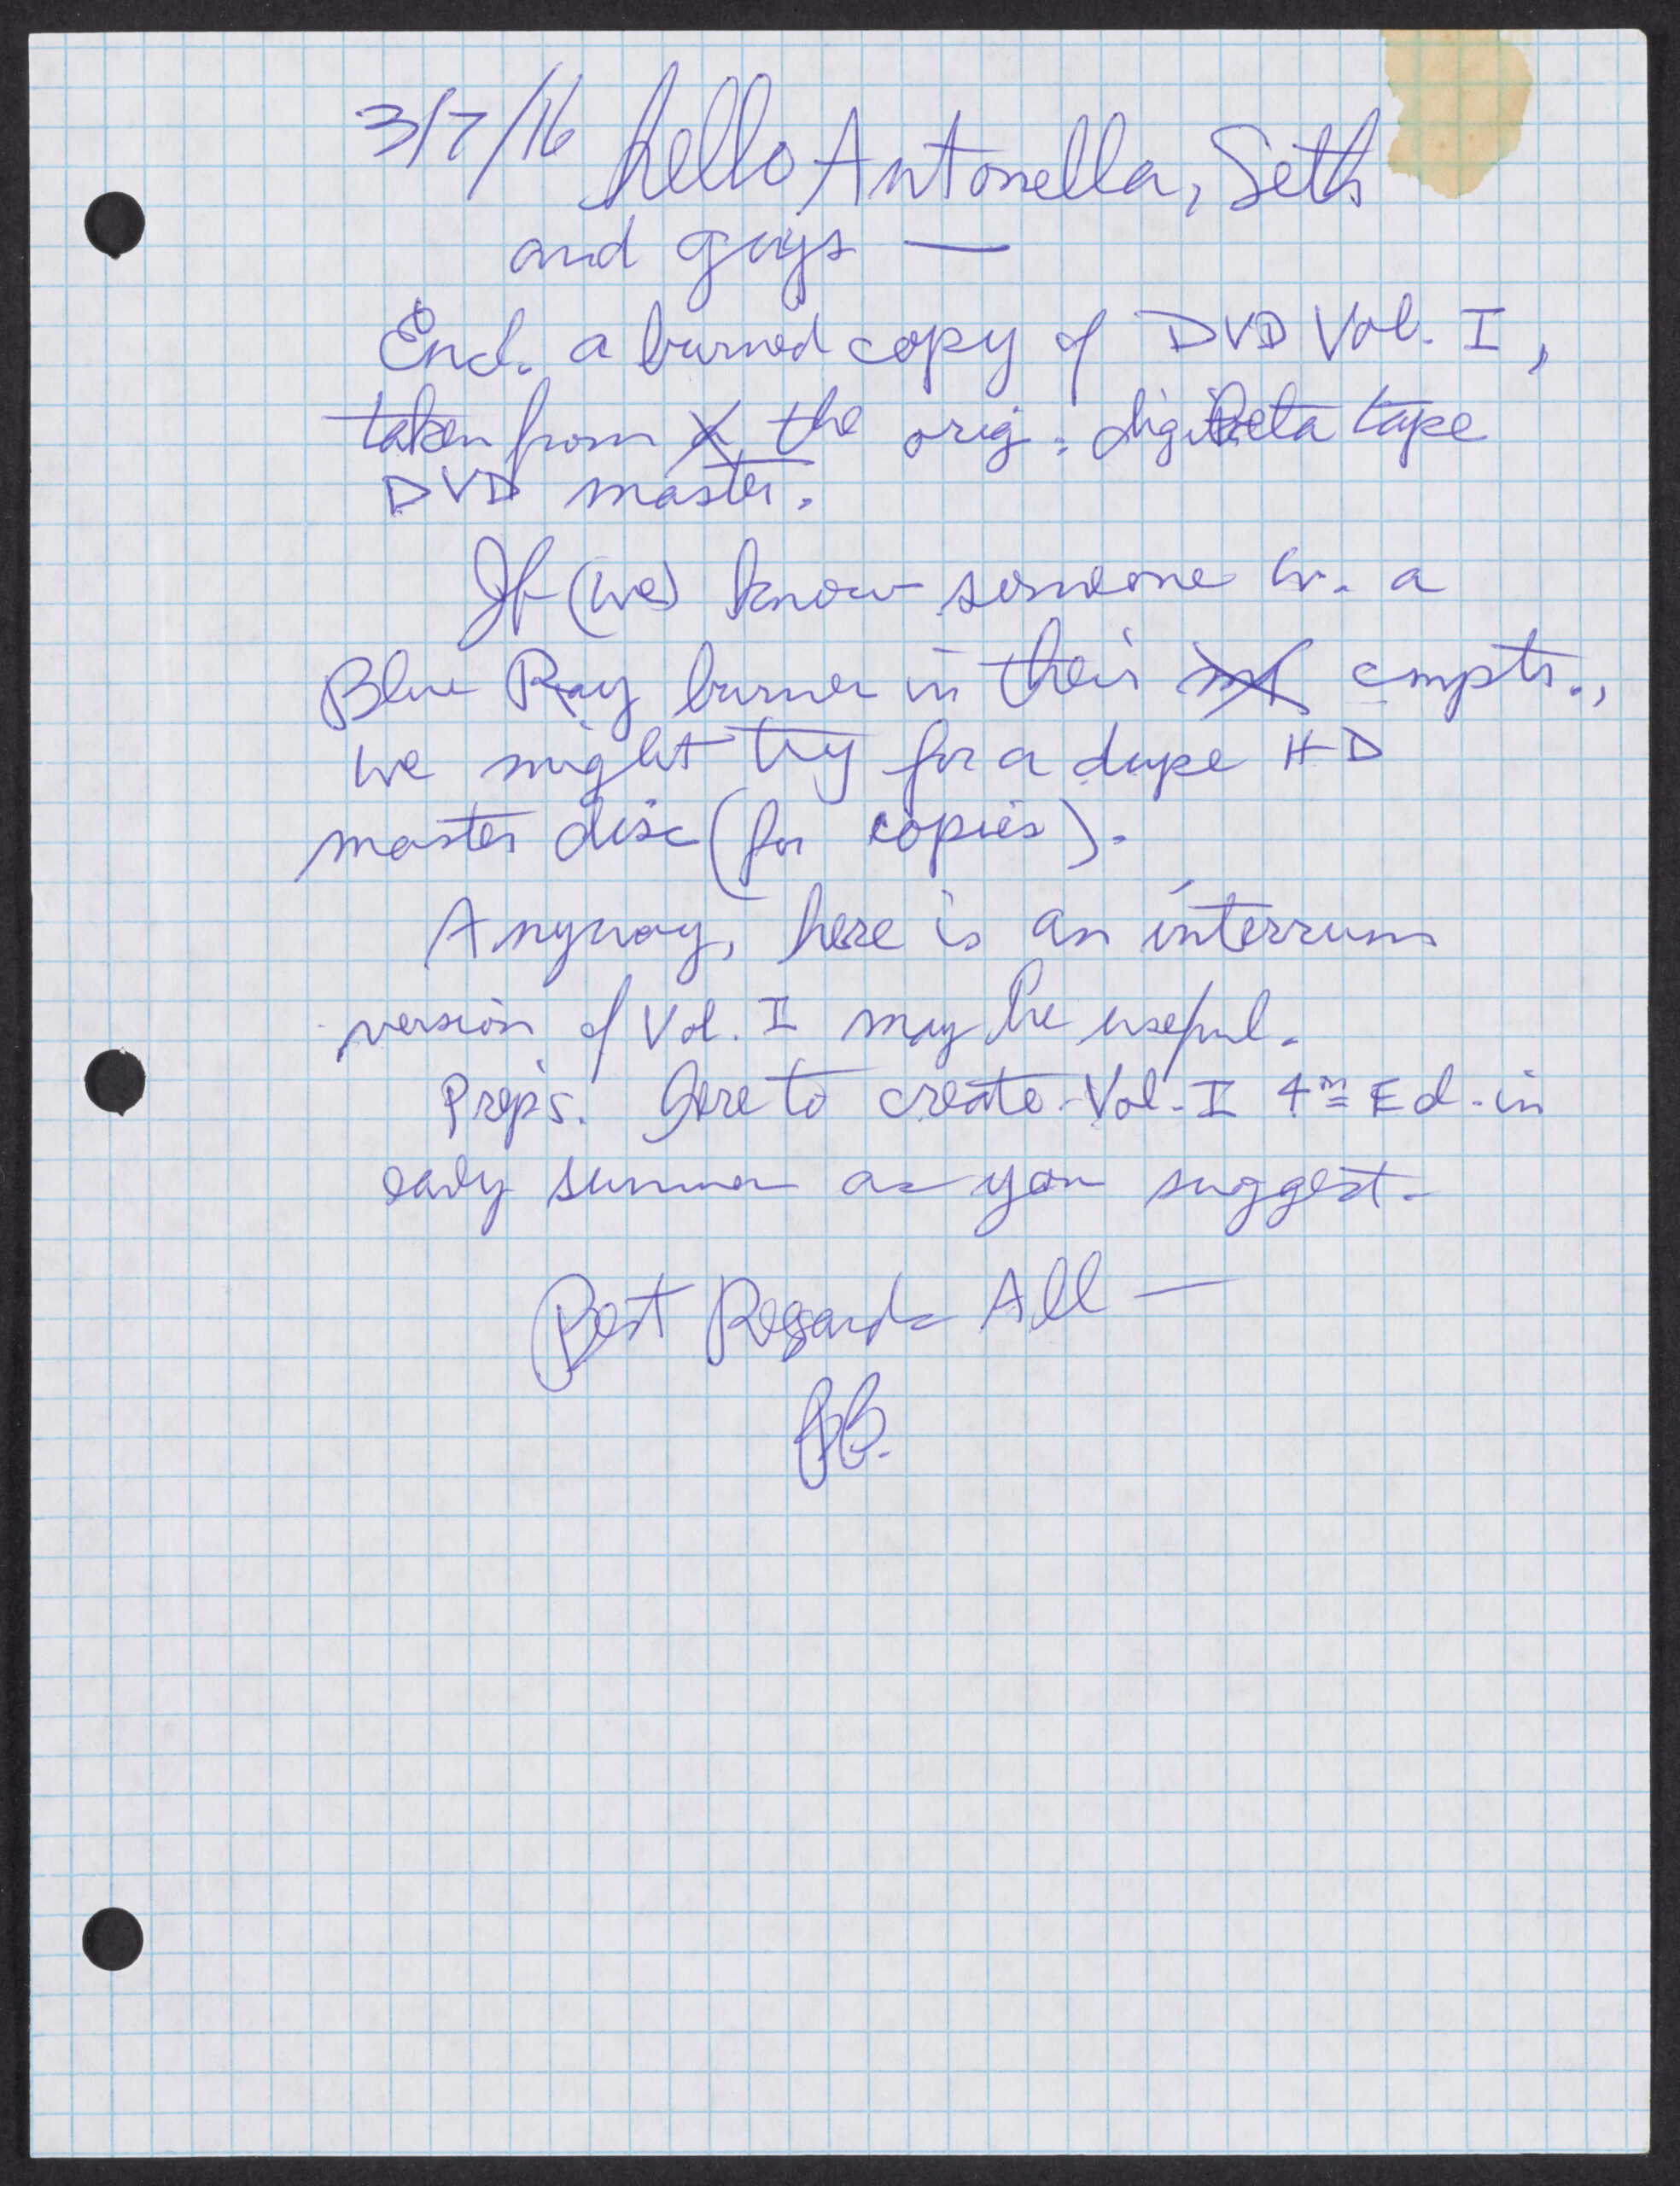 3/7/16 hello Antonella, Seth
and guys —
Encl. a burned copy of DVD Vol. I,
taken from the orig. digibeta tape
DVD master.
If (we) know someone w. a
Blue Ray burner in their cmptr.,
we might try for a dupe HD
master disc (for copies).
Anyway, here is an interrum
version of Vol. I may be useful.
Prep's. here to create Vol. I 4th Ed. in
early summer as you suggest.
Best Regards All —